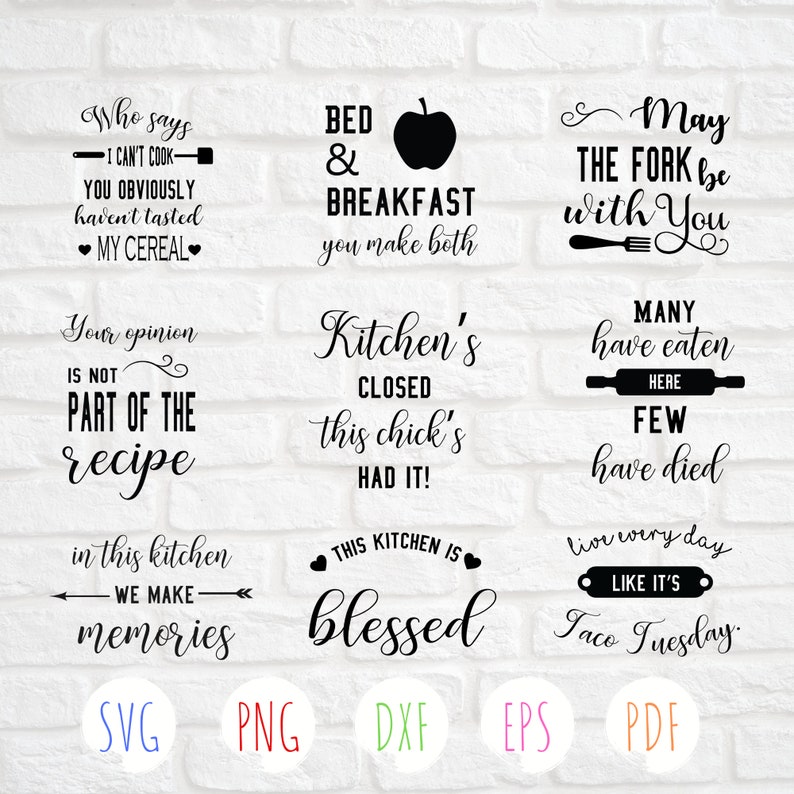 Who says
I CAN'T COOK
YOU OBVIOUSLY
haven't tasted
MY CEREAL
BED
&
BREAKFAST
you make both
May
THE FORK be
with You
Your opinion
IS NOT
PART OF THE
recipe
Kitchen's
CLOSED
this chick's
HAD IT!
MANY
have eaten
HERE
FEW
have died
in this kitchen
WE MAKE
memories
THIS KITCHEN IS
blessed
live every day
LIKE IT'S
Taco Tuesday.
SVG
PNG
DXF
EPS
PDF